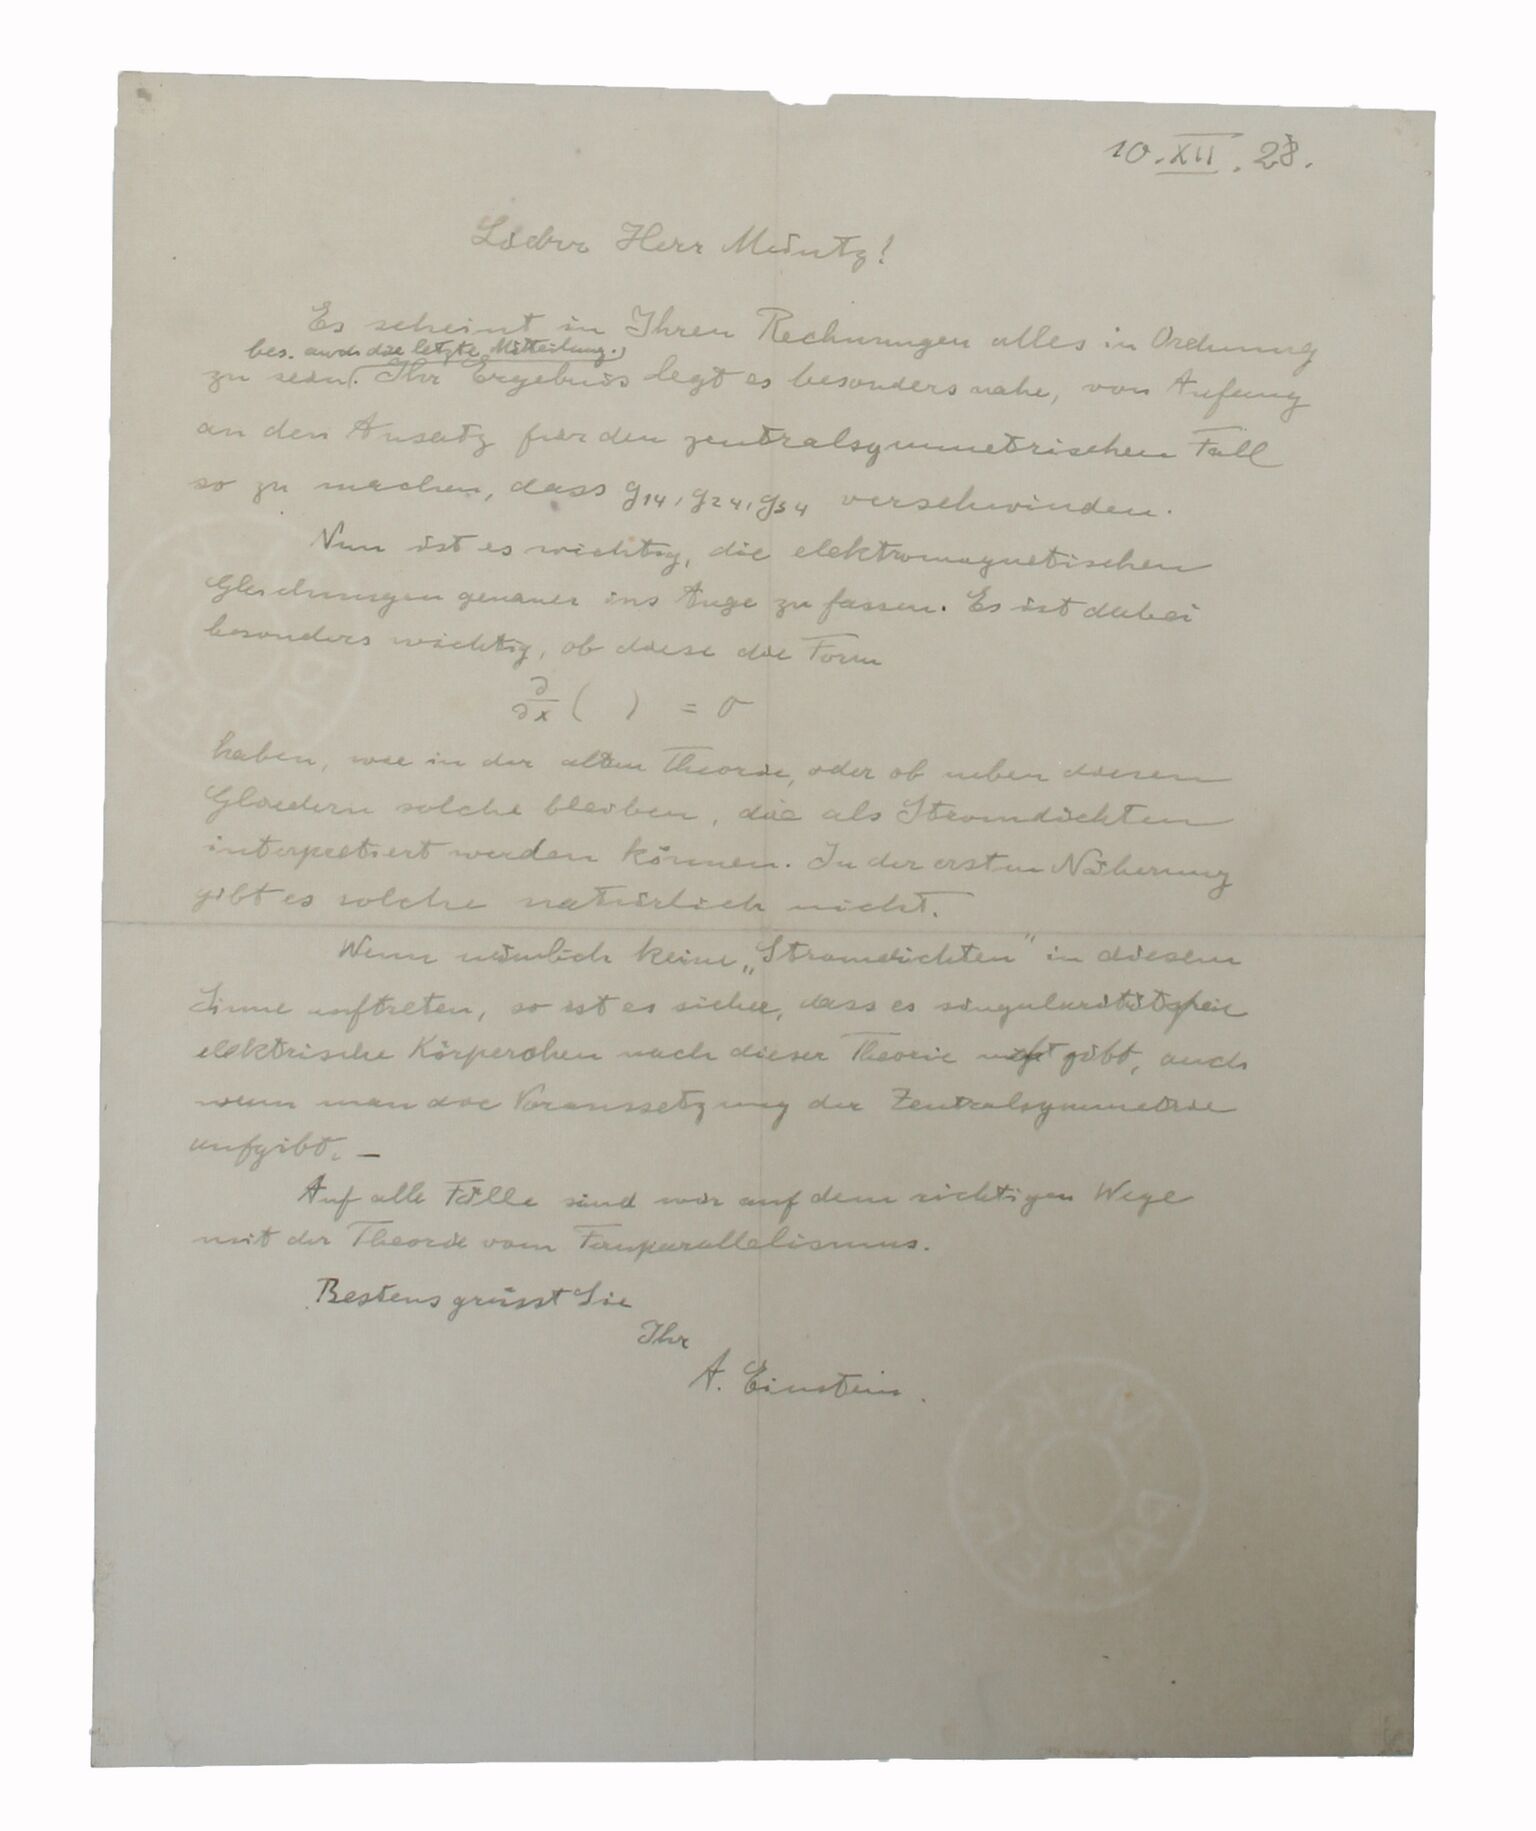 10.XII.28.
Lieber Herr Müntz!
Es scheint in Ihren Rechnungen alles in Ordnung
bes. auch die letzte Mitteilung.)
zu sein(. Ihr Ergebnis legt es besonders nahe, von Anfang
an den Ansatz für den zentralsymmetrischen Fall
so zu machen, dass g14, g24, g34 verschwinden.
Nun ist es wichtig, die elektromagnetischen
Gleichungen genauer ins Auge zu fassen. Es ist dabei
besonders wichtig, ob diese die Form
∂/∂x ( ) = 0
haben, wie in der alten Theorie, oder ob neben diesen
Gliedern solche bleiben, die als Stromdichten
interpretiert werden können. In der ersten Näherung
gibt es solche natürlich nicht.
Wenn nämlich keine „Stromdichten" in diesem
Sinne auftreten, so ist es sicher, dass es singularitätsfreie
elektrische Körperchen nach dieser Theorie nicht gibt, auch
wenn man die Voraussetzung der Zentralsymmetrie
aufgibt. —
Auf alle Fälle sind wir auf dem richtigen Wege
mit der Theorie vom Fernparallelismus.
Bestens grüsst Sie
Ihr
A. Einstein.